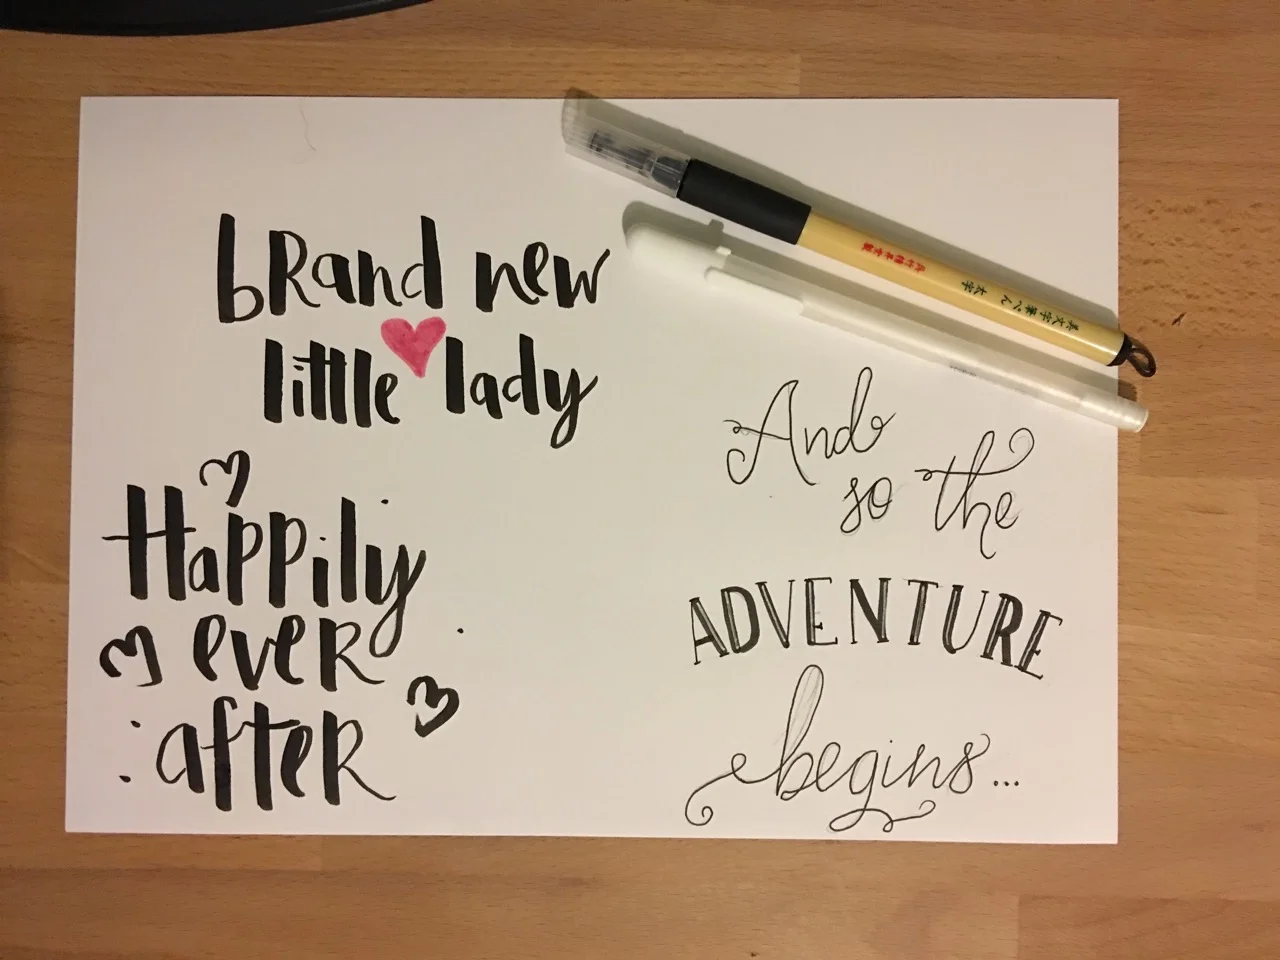 brand new
little lady
Happily
ever
after
And
so the
ADVENTURE
begins...